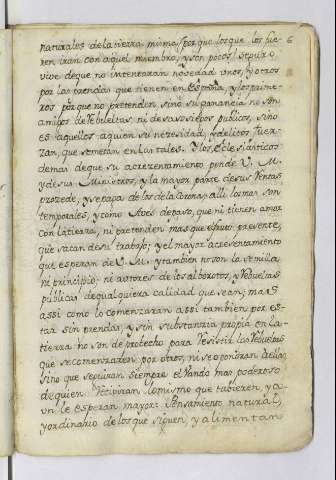 6
naturales de la tierra misma, por que los que los fue
ren iran con aquel miembro, y son pocos, seguro
vive de que no intentaran nouedad unos, y otros
por las prendas que tienen en España, y los prime
ros por que no pretenden sino su ganancia no son
amigos de rebueltas ni desasosiegos publicos, sino
es aquellos a quien su nezesidad, y delitos fuer
zan, que se metan en las tales. Y los Eclesiasticos
demas de que su acrezentamiento pende de V. M.
y de sus Ministros, y la mayor parte de sus Rentas
prozede, y se paga de las de la Corona, alli los mas son
temporales, y como Aves de paso, que ni tienen amor
con la tierra, ni pretenden mas que el fruto presente,
que sacan de su trabajo; y el mayor acresentamiento
que esperan de V. M. y tambien no son la semilla
ni principio ni autores de los alborotos, y rebueltas
publicas de qualquiera calidad que sean; mas
assi como lo comenzaran assi tambien por es
tar sin prendas, y sin substanzia propia en la
tierra no son de probecho para resistir las rebueltas
que se comenzaren por otros, ni se opondran a ellas
sino que seguiran siempre el Vando mas poderoso
de quien reciviran lo mismo que tubieren, y a
un le esperan mayor: Pensamiento natural,
y ordinario de los que siguen, y alimentan